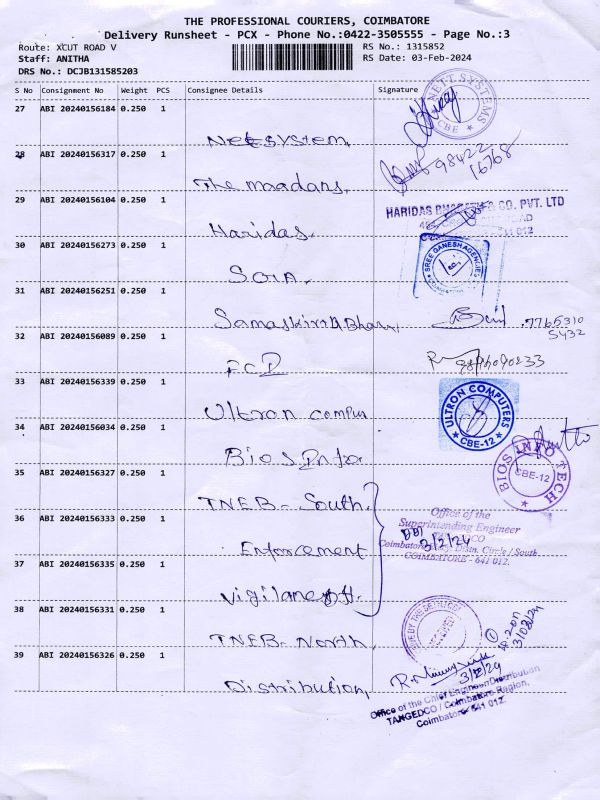 THE PROFESSIONAL COURIERS, COIMBATORE
Delivery Runsheet - PCX - Phone No.:0422-3505555 - Page No.:3
Route: XCUT ROAD V RS No.: 1315852
Staff: ANITHA RS Date: 03-Feb-2024
DRS No.: DCJB131585203
S No Consignment No Weight PCS Consignee Details Signature
27 ABI 20240156184 0.250 1
Netsystem
NETT SYSTEMS CBE
28 ABI 20240156317 0.250 1
98422
16768
The maadans
29 ABI 20240156104 0.250 1
HARIDAS CO. PVT. LTD
Haridas
30 ABI 20240156273 0.250 1
SREE GANESH AGENCIES
SOIA
31 ABI 20240156251 0.250 1
Samaskirit Bhavan
7765310
5432
32 ABI 20240156089 0.250 1
FCI
33 ABI 20240156339 0.250 1
ULTRON COMPUTERS CBE-12
Ultron compu
34 ABI 20240156034 0.250 1
Bios Info
BIOS INFO TECH CBE-12
35 ABI 20240156327 0.250 1
TNEB - South
36 ABI 20240156333 0.250 1
Office of the
Superintending Engineer
3/2/24
Coimbatore Distn. Circle / South
COIMBATORE - 641 012.
Enforcement
37 ABI 20240156335 0.250 1
Vigilance
38 ABI 20240156331 0.250 1
TNEB - North
39 ABI 20240156326 0.250 1
3/2/24
Distribution
Office of the Chief Engineer/Distribution
TANGEDCO / Coimbatore Region,
Coimbatore-641 012.